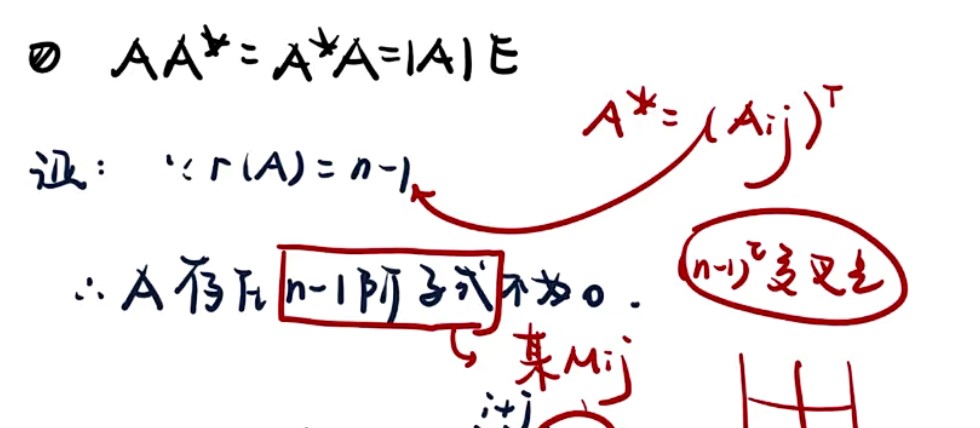 ② AA* = A*A = |A| E
A* = (Aij)ᵀ
证: ∵ r(A) = n-1
∴ A 存在 n-1阶子式 不为 0 .
(n-1)
某Mij
i+j